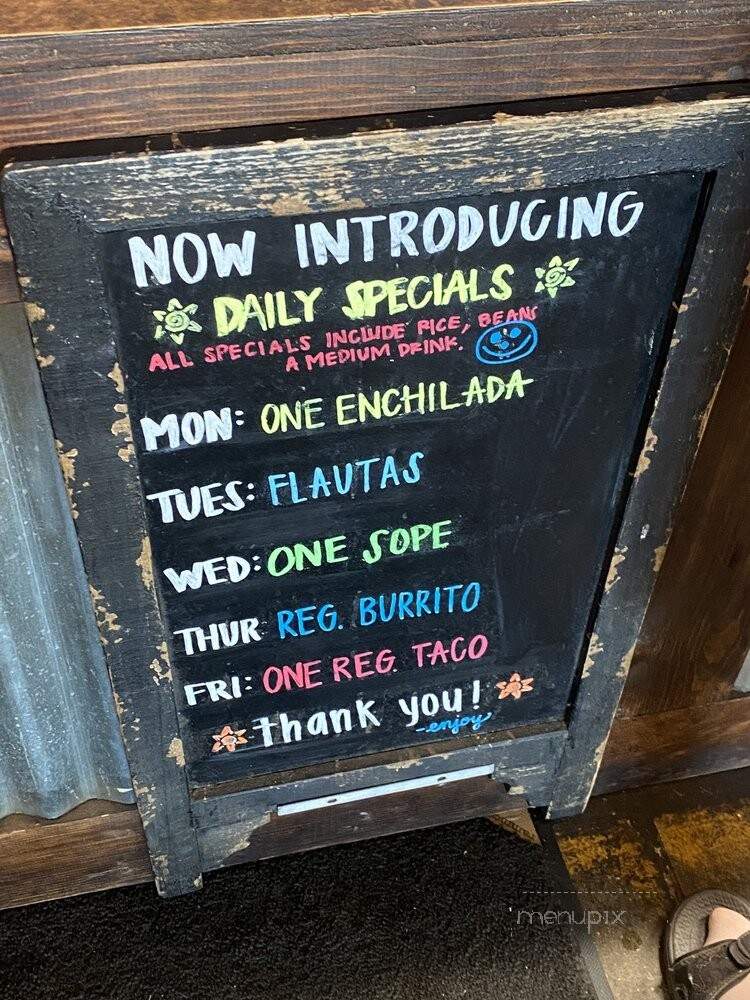 NOW INTRODUCING
DAILY SPECIALS
ALL SPECIALS INCLUDE RICE, BEANS
A MEDIUM DRINK.
MON: ONE ENCHILADA
TUES: FLAUTAS
WED: ONE SOPE
THUR REG. BURRITO
FRI: ONE REG. TACO
thank you!
-enjoy
menupix